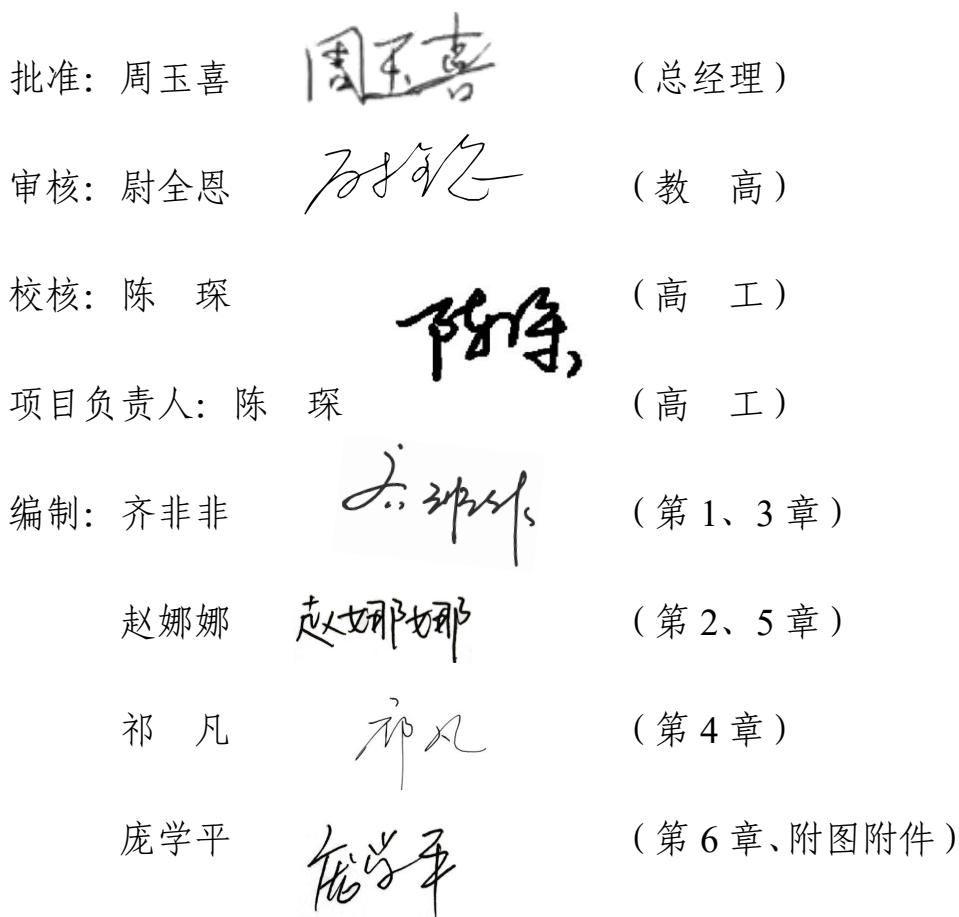 批准：周玉喜 周玉喜 （总经理）
审核：尉全恩 尉全恩 （教 高）
校核：陈 琛 陈琛 （高 工）
项目负责人：陈 琛 （高 工）
编制：齐非非 齐非非 （第 1、3 章）
赵娜娜 赵娜娜 （第 2、5 章）
祁 凡 祁凡 （第 4 章）
庞学平 庞学平 （第 6 章、附图附件）